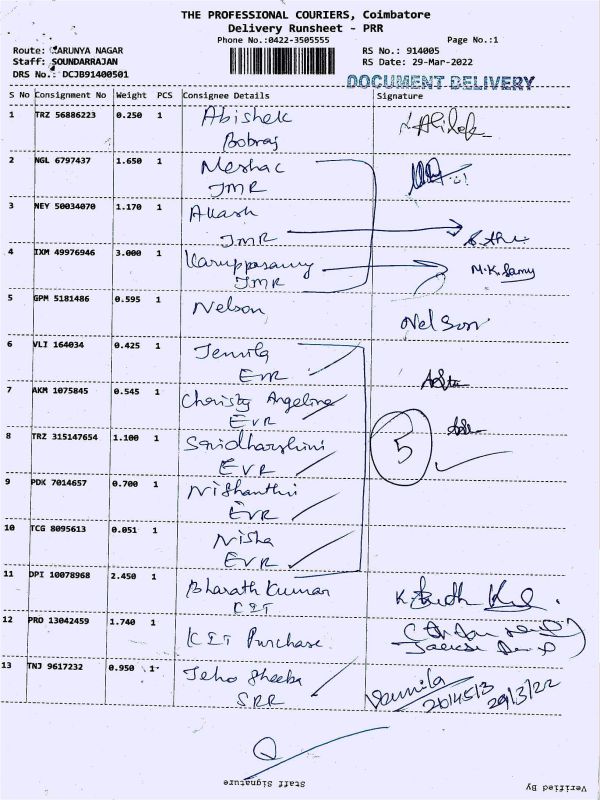 THE PROFESSIONAL COURIERS, Coimbatore
Delivery Runsheet - PRR
Phone No.:0422-3505555 Page No.:1
Route: KARUNYA NAGAR RS No.: 914005
Staff: SOUNDARRAJAN RS Date: 29-Mar-2022
DRS No.: DCJB91400501
DOCUMENT DELIVERY
S No Consignment No Weight PCS Consignee Details Signature
1 TRZ 56886223 0.250 1 Abishek
Bobraj
2 NGL 6797437 1.650 1 Meshac
JMR
3 NEY 50034070 1.170 1 Akash
JMR
4 IXM 49976946 3.000 1 Karuppasamy M.K.Samy
JMR
5 GPM 5181486 0.595 1 Nelson Nelson
6 VLI 164034 0.425 1 Jemila
EVR
7 AKM 1075845 0.545 1 Christy Angeline
EVR
8 TRZ 315147654 1.100 1 Saridharshini 5
EVR
9 PDK 7014657 0.700 1 Nishanthi
EVR
10 TCG 8095613 0.051 1 Nisha
EVR
11 DPI 10078968 2.450 1 Bharath Kumar
CIT
12 PRO 13042459 1.740 1 Purchase
13 TNJ 9617232 0.950 1 Jeho Sheeba
SRR 29/3/22
Staff Signature Verified By